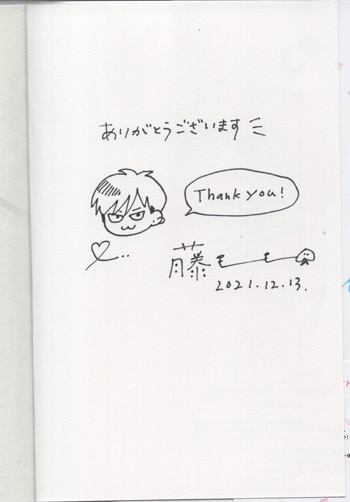 ありがとうございます
Thank you!
藤モモ
2021.12.13.